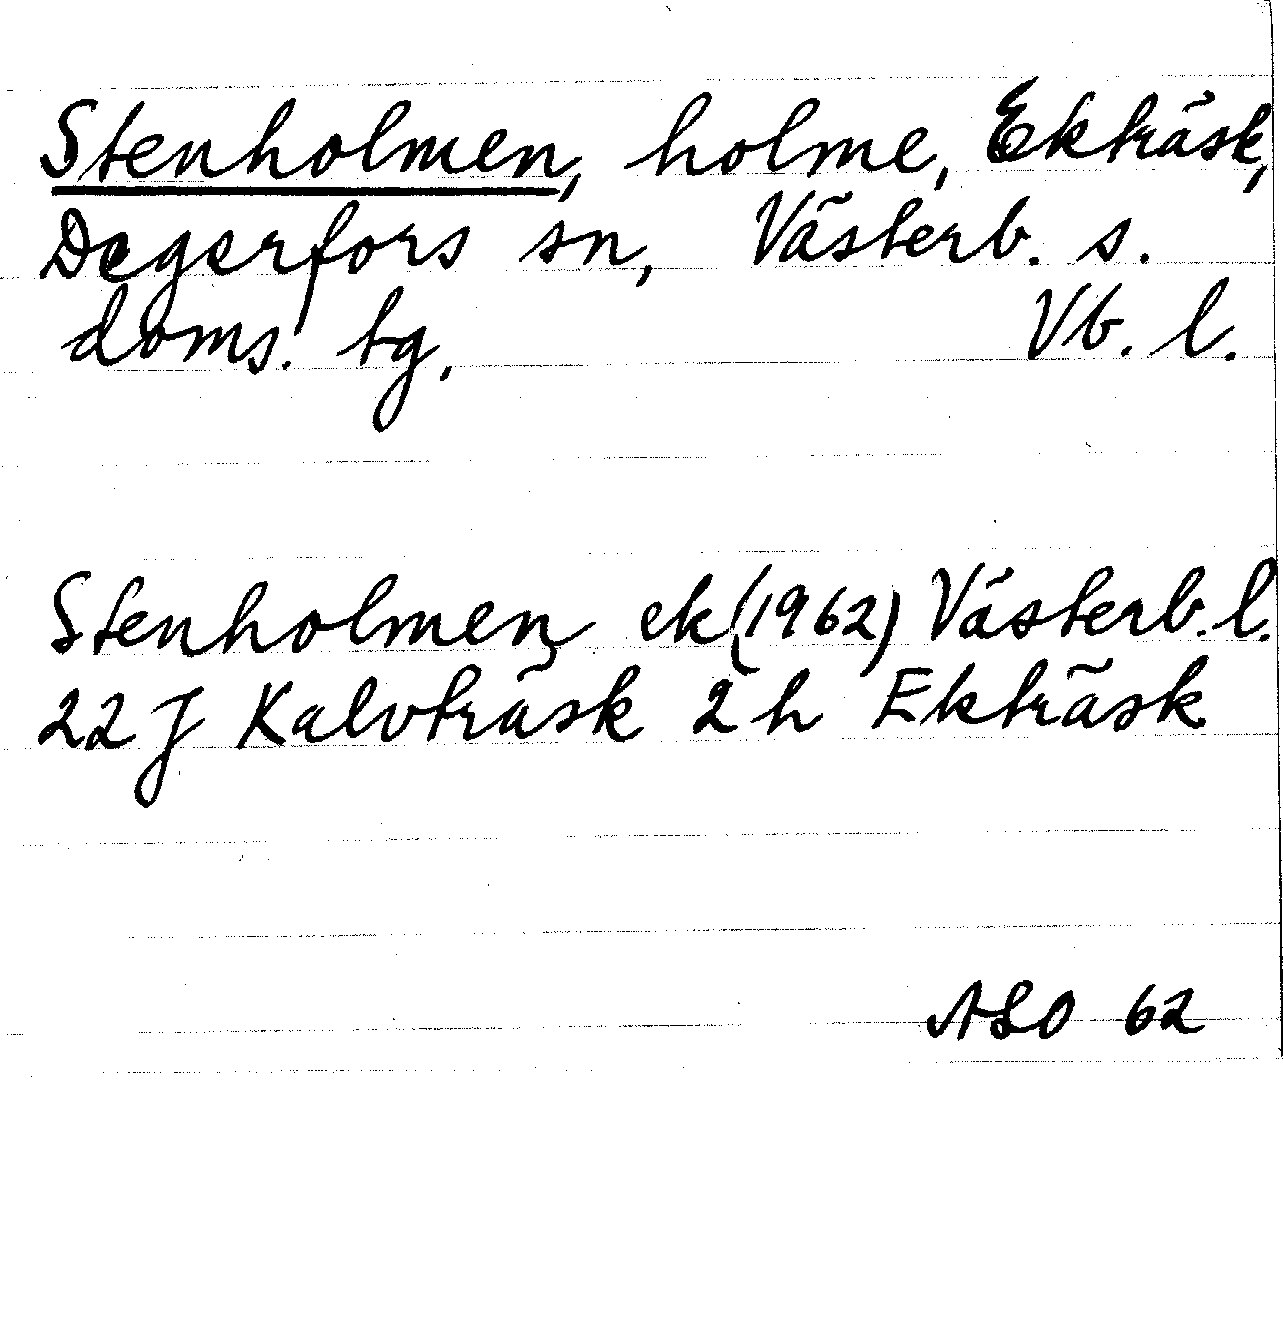 Stenholmen, holme, Ekträsk,
Degerfors sn, Västerb. s.
doms. tg, Vb. l.
Stenholmen ek (1962) Västerb. l.
22 J Kalvträsk 2 h Ekträsk
ASO 62